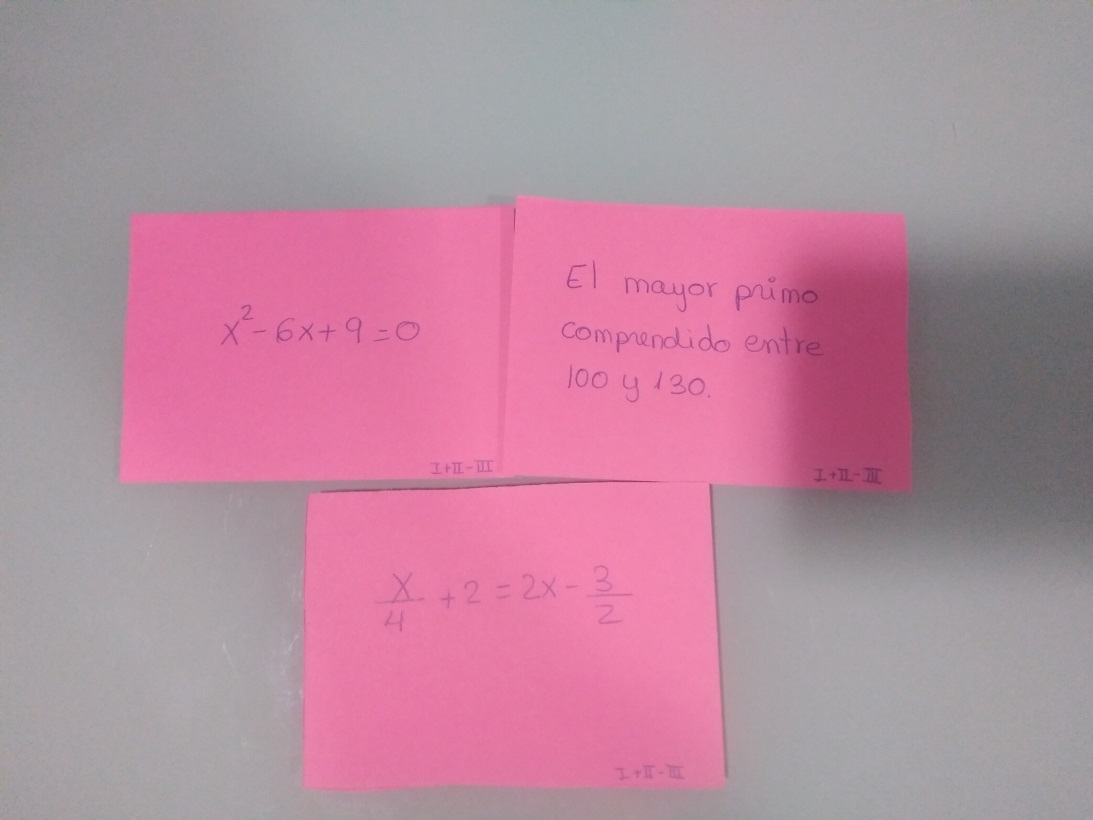 x² - 6x + 9 = 0
I+II-III
El mayor primo
comprendido entre
100 y 130.
I+II-III
x/4 + 2 = 2x - 3/2
I+II-III